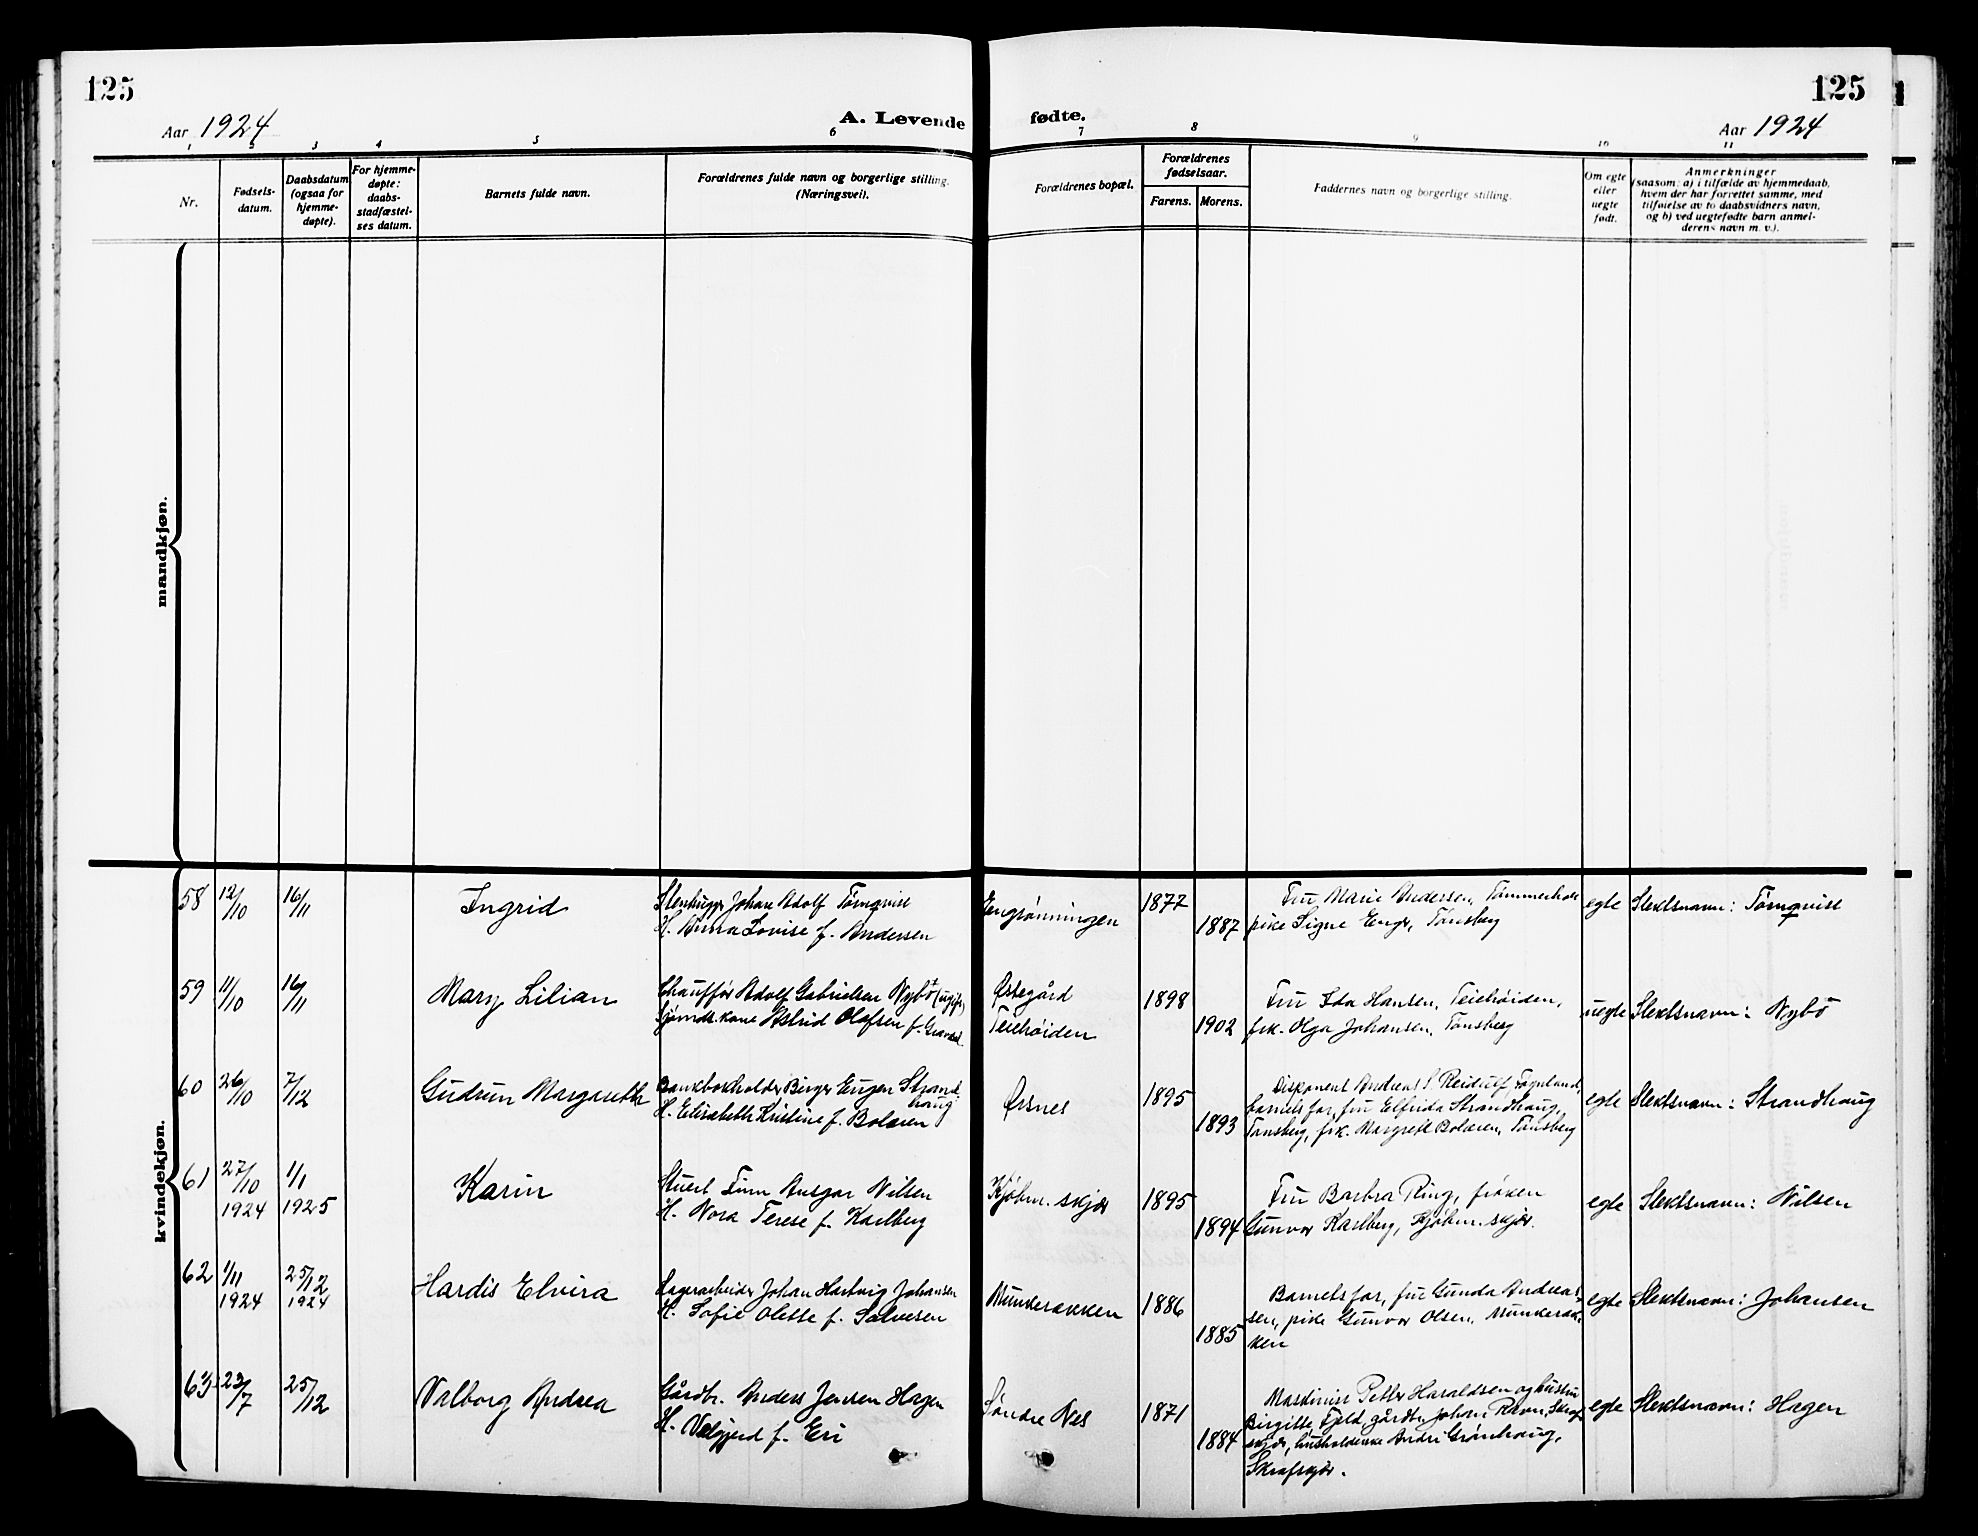 125
125
Aar 1924
A. Levende fødte.
Aar 1924
1 2 3 4 5 6 7 8 9 10 11
Nr.
Fødsels-
datum.
Daabsdatum
(ogsaa for
hjemme-
døpte).
For hjemme-
døpte:
daabs-
stadfæstel-
ses datum.
Barnets fulde navn.
Forældrenes fulde navn og borgerlige stilling.
(Næringsvei).
Forældrenes bopæl.
Forældrenes
fødselsaar.
Farens. Morens.
Faddernes navn og borgerlige stilling.
Om egte
eller
uegte
født.
Anmerkninger
(saasom: a) i tilfælde av hjemmedaab,
hvem der har forrettet samme, med
tilføielse av to daabsvidners navn,
og b) ved uegtefødte barn anmel-
derens navn m. v.).
mandkjøn.
kvindekjøn.
58 12/10 16/11 Ingrid
Stenhugger Johan Adolf Törnqvist
H. Anna Lovise f. Andersen
Engrønningen
1877
1887
Fru Marie Andersen,
pike Signe Enge, Tønsberg
egte
Slektsnavn: Törnqvist
59 11/10 16/11 Mary Lilian
Chauffør Adolf Gabrielsen Nybö (ugift)
Sjømds. kone Astrid Olafsen f.
Østegård
Teiehøiden
1898
1902
Fru Ida Hansen, Teiehøiden,
frk. Olga Johansen, Tønsberg
uegte
Slektsnavn: Nybö
60 26/10 7/12 Gudrun Margareth
Bankbokholder Birger Eugen Strand-
haug
H. Elisabeth Kristine f. Bolæren
Ørsnes
1895
1893
Disponent Andreas S. Reidulf
barnets far, fru Elfrida Strandhaug,
Tønsberg, frk. Margrete Bolæren, Tønsberg
egte
Slektsnavn: Strandhaug
61 27/10 1924 1/1 1925 Karin
Stuert Finn Ansgar Nilsen
H. Nora Terese f. Karlberg
Kjøbm. skjær
1895
1894
Fru Barbra Ring, frøken
Gunvor Karlberg, Kjøbm. skjær.
egte
Slektsnavn: Nilsen
62 1/11 1924 25/12 1924 Hardis Elvira
Lagerarbeider Johan Hartvig Johansen
H. Sofie Olette f. Salvesen
Munkerækken
1886
1885
Barnets far, fru Gunda Andreas-
sen, pike Gunvor Olsen, Munkeræk-
ken
egte
Slektsnavn: Johansen
63 23/7 25/12 Valborg Andrea
Gårdbr. Anders Jensen Hagen
H. Valgjerd f. Eri
Søndre Nes
1871
1884
Maskinist Petter Haraldsen og hustru
Birgitte Fjeld, gårdbr. Johan Ravn, Skraf-
skjær, husholderske Andri Grønhaug,
Skrafskjær.
egte
Slektsnavn: Hagen